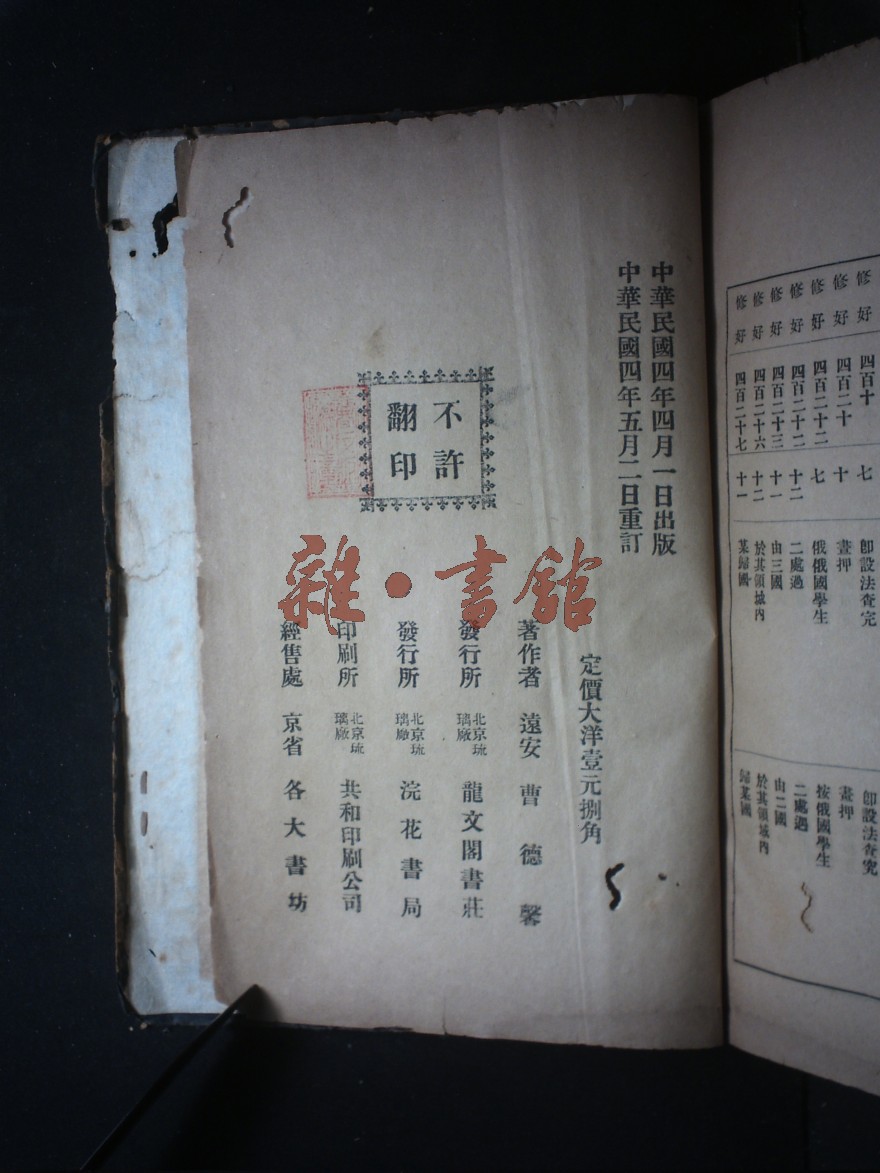 修好 四百十 七 卽設法查完 卽設法查究
修好 四百二十 十 畫押 畫押
修好 四百二十二 七 俄俄國學生 按俄國學生
修好 四百二十二 十二 二處過 二處遇
修好 四百二十三 十一 由三國 由二國
修好 四百二十六 十二 於其領城內 於其領域內
修好 四百二十七 十一 某歸國 歸某國
中華民國四年四月一日出版
中華民國四年五月二日重訂
定價大洋壹元捌角
不許
翻印
著作者 遠安 曹德馨
發行所 北京琉璃廠 龍文閣書莊
發行所 北京琉璃廠 浣花書局
印刷所 北京琉璃廠 共和印刷公司
經售處 京省 各大書坊
雜·書館